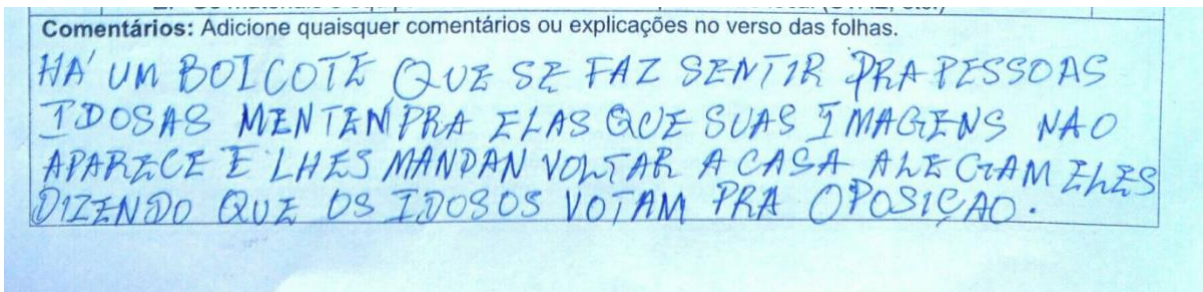 Comentários: Adicione quaisquer comentários ou explicações no verso das folhas.
HÁ UM BOICOTE QUE SE FAZ SENTIR PRA PESSOAS
IDOSAS MENTEM PRA ELAS QUE SUAS IMAGENS NAO
APARECE E LHES MANDAN VOLTAR A CASA ALEGAM ELES
DIZENDO QUE OS IDOSOS VOTAM PRA OPOSIÇAO.